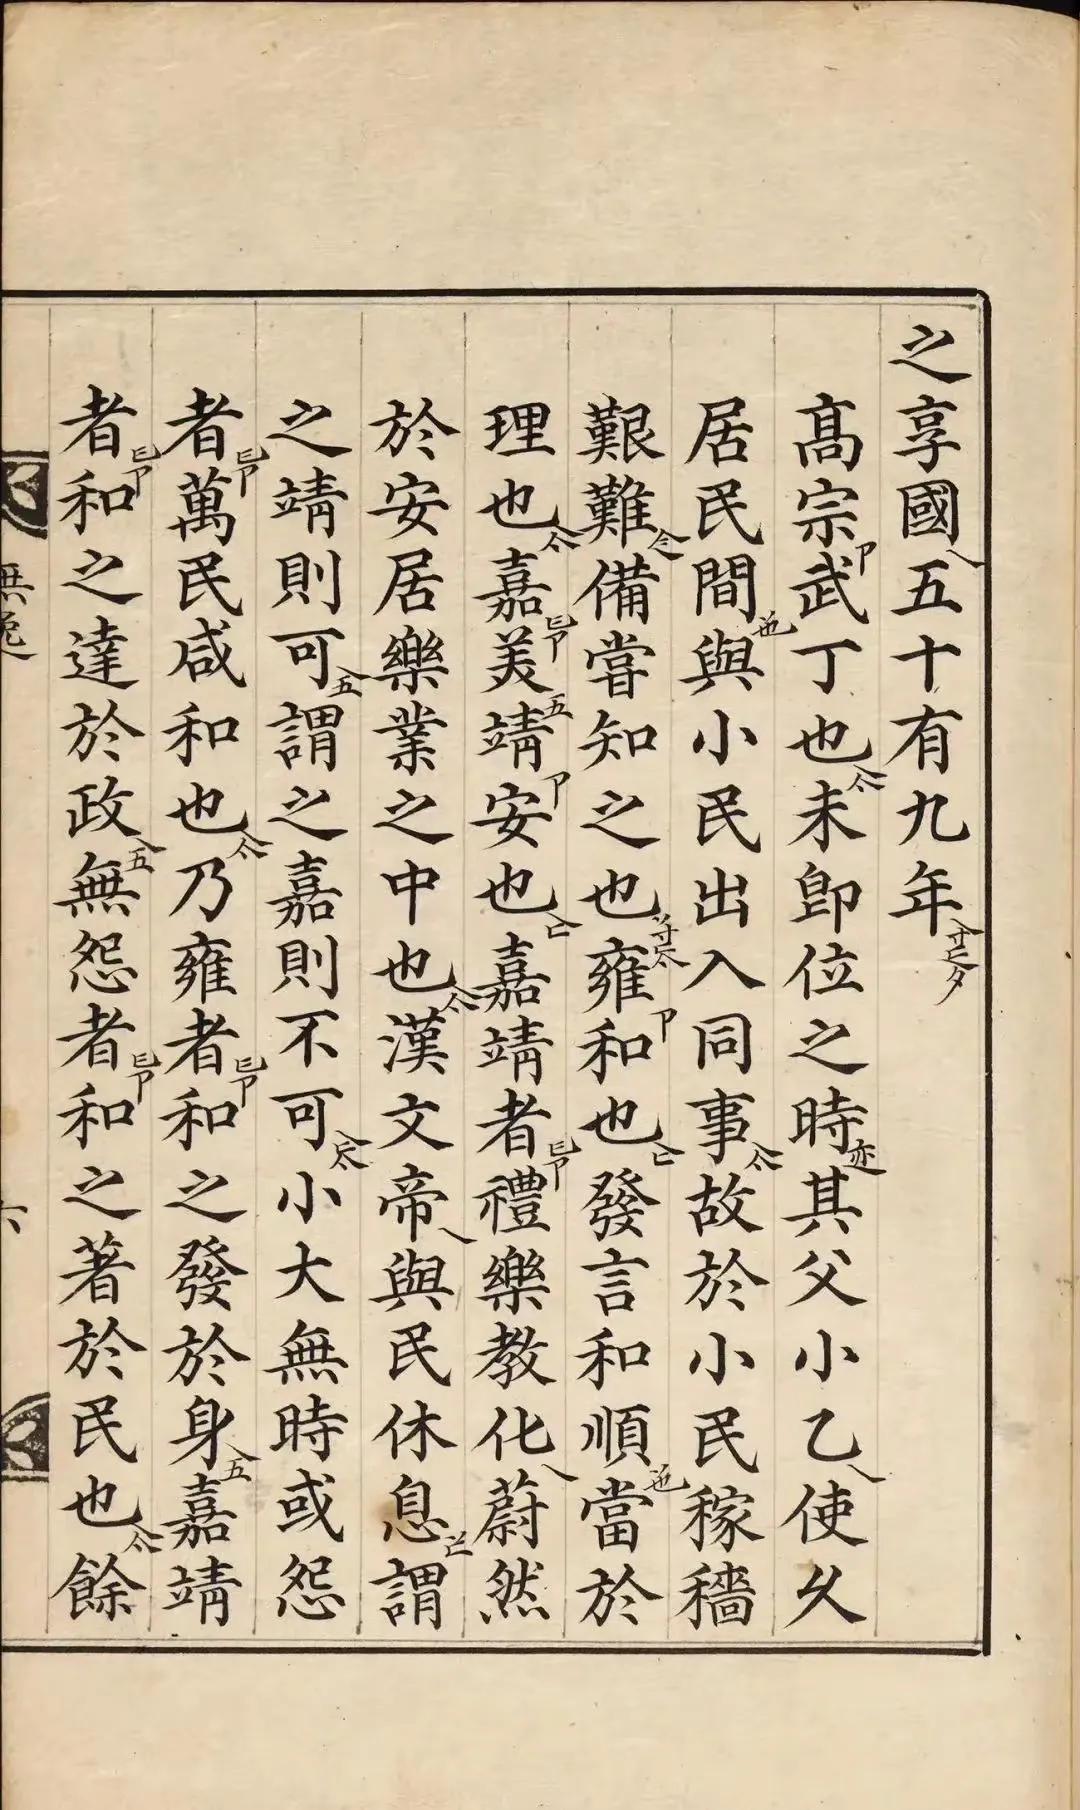 之享國五十有九年
高宗武丁也未卽位之時其父小乙使久
居民間與小民出入同事故於小民稼穡
艱難備嘗知之也雍和也發言和順當於
理也嘉美靖安也嘉靖者禮樂敎化蔚然
於安居樂業之中也漢文帝與民休息謂
之靖則可謂之嘉則不可小大無時或怨
者萬民咸和也乃雍者和之發於身嘉靖
者和之達於政無怨者和之著於民也餘
無逸
六